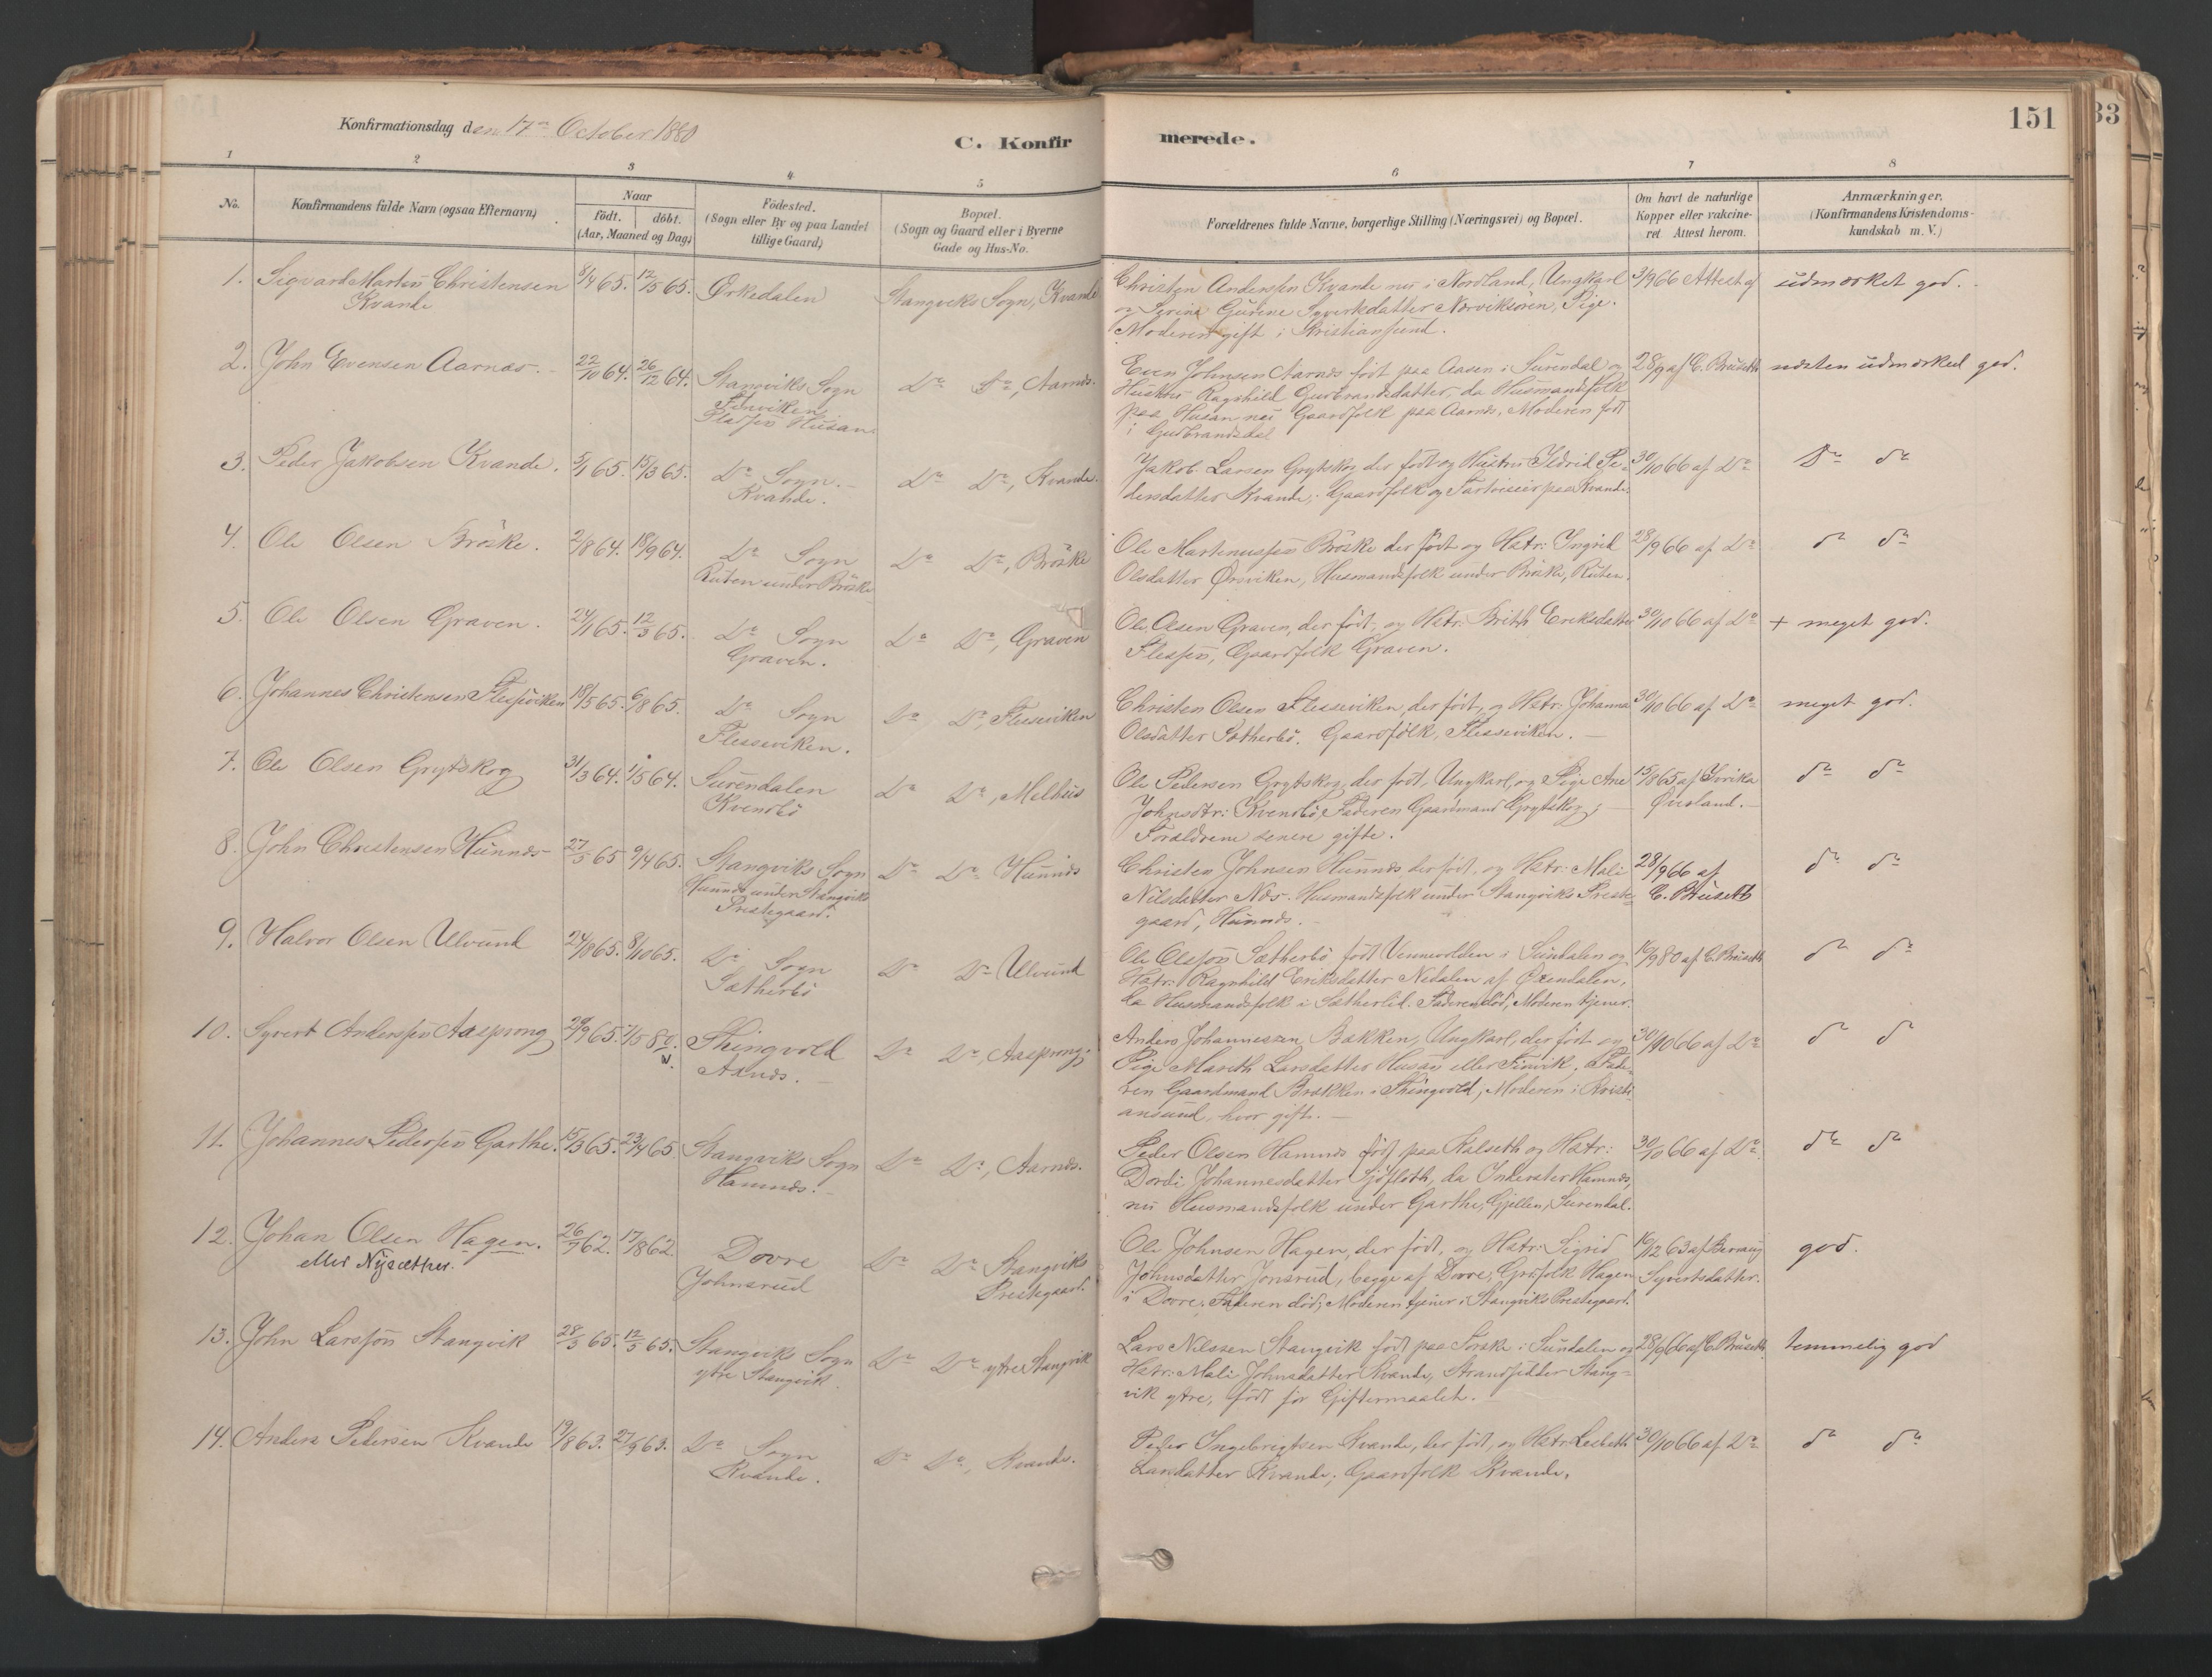 Konfirmationsdag den 17de October 1880
C. Konfir merede.
151
33
1 2 3 4 5 6 7 8
No.
Konfirmandens fulde Navn (ogsaa Efternavn)
Naar
födt. döbt.
(Aar, Maaned og Dag)
Födested.
(Sogn eller By og paa Landet
tillige Gaard)
Bopæl.
(Sogn og Gaard eller i Byerne
Gade og Hus-No.
Forældrenes fulde Navne, borgerlige Stilling (Næringsvei) og Bopæl.
Om havt de naturlige
Kopper eller vakcine-
ret Attest herom.
Anmærkninger.
(Konfirmandens Kristendoms-
kundskab m. V.)
1. Sigvard Martin Christensen 8/4 65. 12/5 65. Ørkedalen Stangviks Sogn, Kvande Christen Andersen Kvande nu i Nordland, Ungkarl 3/9 66 Attest af udmærket god.
Kvande og Serine Gurine Syvertsdatter Nærviksören, Pige.
Moderen gift i Kristiansund.
2. John Evensen Aarnæs. 22/10 64. 26/12 64. Stangviks Sogn Do Do, Aarnæs. Even Johnsen Aarnæs født paa Aasen i Surendal og 28/9 af C. Bruseth næsten udmærked god.
Hustru Ragnhild Gudbrandsdatter, da Husmandsfolk
Pladsen Husan. paa Husan nu Gaardfolk paa Aarnæs, Moderen født
i Gudbrandsdal
3. Peder Jakobsen Kvande. 5/1 65. 15/3 65. Do Sogn. Do Do, Kvande. Jakob Larsen Grytskog der født og Hustru Ildrid Pe- 30/10 66 af Do Do do
Kvande. dersdatter Kvande, Gaardfolk og paa Kvande.
4. Ole Olsen Bröske. 2/8 64. 18/9 64. Do Sogn Do Do, Bröske Ole Martinussen Bröske der født og Hstr: Ingrid 28/9 66 af Do do do
Ruten under Bröske Olsdatter Örsviken, Husmandsfolk under Bröske, Ruten.
5. Ole Olsen Graven. 24/1 65. 12/3 65. Do Sogn Do Do, Graven Ole Olsen Graven, der født, og Hstr. Brith Eriksdatter 30/10 66 af Do + meget god.
Graven. Flessen, Gaardfolk Graven.
6. Johannes Christensen Flesseviken 18/5 65. 6/8 65. Do Sogn Do Do, Flesseviken Christen Olsen Flesseviken, der født, og Hstr. Johanna 30/10 66 af Do meget god.
Flesseviken. Olsdatter Sætherbö. Gaardfolk, Flesseviken.
7. Ole Olsen Grytskog 31/3 64. 1/5 64. Surendalen Do Do, Melhus Ole Pedersen Grytskog, der født, Ungkarl, og Pige Ane 15/8 65 af do do
Kvendbö Johnsdtr: Kvendbö, Faderen Gaardmand Grytskog; Öiesland.
Forældrene senere gifte.
8. John Christensen Hunnæs 27/3 65 9/4 65. Stangviks Sogn Do Do Hunnæs Christen Johnsen Hunnæs der født, og Hstr: Mali 28/9 66 af do do
Hunnæs under Stangviks Nilsdatter Næs. Husmandsfolk under Stangviks Preste- C. Bruseth
Prestegaard. gaard, Hunnæs.
9. Halvor Olsen Ulvund 24/8 65. 8/10 65. Do Sogn Do Do Ulvund Ole Olsson Sætherbö født Vennevolden i Sundalen og 16/9 80 af C. Bruseth do do
Sætherbö Hstr. Ragnhild Eriksdatter Nedalen af Öxendalen,
da Husmandsfolk i Sætherlid. Faderen død, Moderen tjener.
10. Syvert Andersen Aasprong 29/9 65. 7/5 80. Thingvold Do Do, Aasprong. Anders Johannessen Bakken, Ungkarl, der født og 30/10 66 af Do do do
N. Aknæs. Pige Mareth Larsdatter Husan eller Finvik. Fade-
ren Gaardmand Brakken i Thingvold, Moderen i Kristi-
ansund, hvor gift.
11. Johannes Pedersen Garthe. 15/3 65. 23/4 65. Stangviks Sogn Do Do, Aarnæs. Peder Olsen Hamnæs født paa Kalseth og Hstr: 30/10 66 af Do. do do
Hamnæs. Dordi Johannesdatter Sjöfloth, da Inderster Hamnæs,
nu Husmandsfolk under Garthe, Gjellen, Surendal.
12. Johan Olsen Hagen. 26/7 62. 17/8 62. Dovre Do Do Stangviks Ole Johnsen Hagen, der født, og Hstr: Sigrid 16/12 63 af god.
eller Nysæther. Johnsrud Prestegaard. Johnsdatter Jonsrud, begge af Dovre, Grdfolk Hagen Syvertsdatter.
i Dovre. Faderen död, Moderen tjener i Stangviks Prestegaard.
13. John Larsson Stangvik 28/3 65. 12/5 65. Stangviks Sogn Do Do ytre Stangvik Lars Nilssen Stangvik født paa Forske i Sundalen og 28/9 66 af C. Bruseth temmelig god
ytre Stangvik. Hstr. Mali Johnsdatter Kvande, Strandsidder Stang-
vik ytre, født før Giftermaalet.
14. Anders Pedersen Kvande 19/8 63. 27/9 63. Do Sogn Do Do, Kvande. Peder Ingebrigtsen Kvande, der født, og Hstr. Lisbeth 30/10 66 af Do do do
Kvande. Larsdatter Kvande; Gaardfolk Kvande.